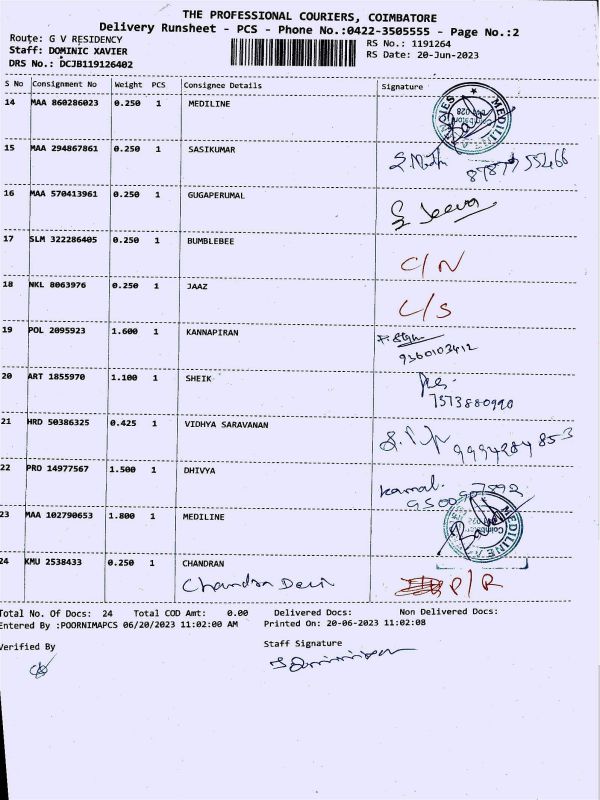 THE PROFESSIONAL COURIERS, COIMBATORE
Delivery Runsheet - PCS - Phone No.:0422-3505555 - Page No.:2
Route: G V RESIDENCY
Staff: DOMINIC XAVIER
DRS No.: DCJB119126402
RS No.: 1191264
RS Date: 20-Jun-2023
S No Consignment No Weight PCS Consignee Details Signature
14 MAA 860286023 0.250 1 MEDILINE
MEDILINE
15 MAA 294867861 0.250 1 SASIKUMAR
16 MAA 570413961 0.250 1 GUGAPERUMAL
Jeeva
17 SLM 322286405 0.250 1 BUMBLEBEE C/N
18 NKL 8063976 0.250 1 JAAZ L/S
19 POL 2095923 1.600 1 KANNAPIRAN
9360103412
20 ART 1855970 1.100 1 SHEIK
7373880990
21 HRD 50386325 0.425 1 VIDHYA SARAVANAN
9994284853
22 PRO 14977567 1.500 1 DHIVYA
kamal.
23 MAA 102790653 1.800 1 MEDILINE
MEDILINE
24 KMU 2538433 0.250 1 CHANDRAN
Chandra Devi P/R
Total No. Of Docs: 24 Total COD Amt: 0.00 Delivered Docs: Non Delivered Docs:
Entered By :POORNIMAPCS 06/20/2023 11:02:00 AM Printed On: 20-06-2023 11:02:08
Verified By
Staff Signature